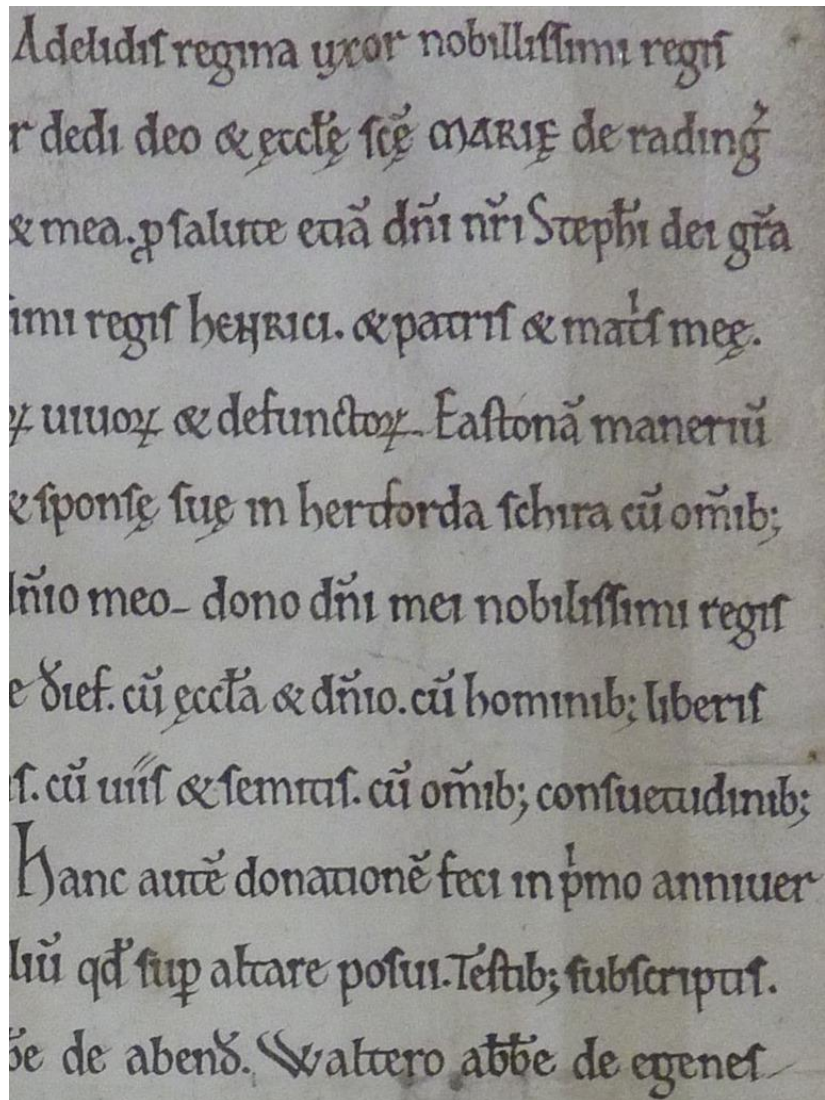 Adelidis regina uxor nobillissimi regis
r dedi deo & ęccłę scę̄ MARIĘ de rading̃
& mea. ꝑ salute etiā dñi nr̃i Steph̄i dei gr̃a
imi regis hENRICI. & patris & matͥs meę.
ꝝ uiuoꝝ & defunctoꝝ. Eastonā maneriū
& sponsę suę in hertforda schira cū om̄ib;
dñio meo. dono dñi mei nobilissimi regis
e dief. cū ęccła & dñio. cū hominib; liberis
s. cū uiis & semitis. cū om̄ib; consuetudinib;
Hanc autē donationē feci in pͥmo anniuer
liū qđ suꝑ altare posui. Testib; subscriptis.
b̄e de abend̄. Waltero abb̄e de egenes